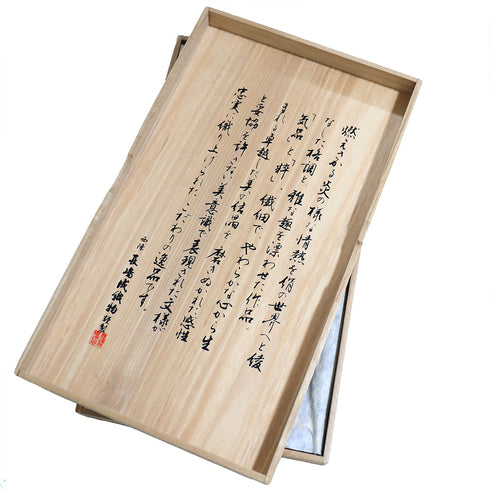 燃えさかる炎の様な情熱を絹の世界へと優
なした格調と、雅な趣を漂わせた作品。
「気品」と「粋」、繊細で、やわらかな心から生
まれる卓越した美の結晶を 磨きぬかれた感性
と妥協を許さない美意識で表現された文様が
忠実に織り上げられたこだわりの逸品です。
西陣 長嶋成織物 謹製